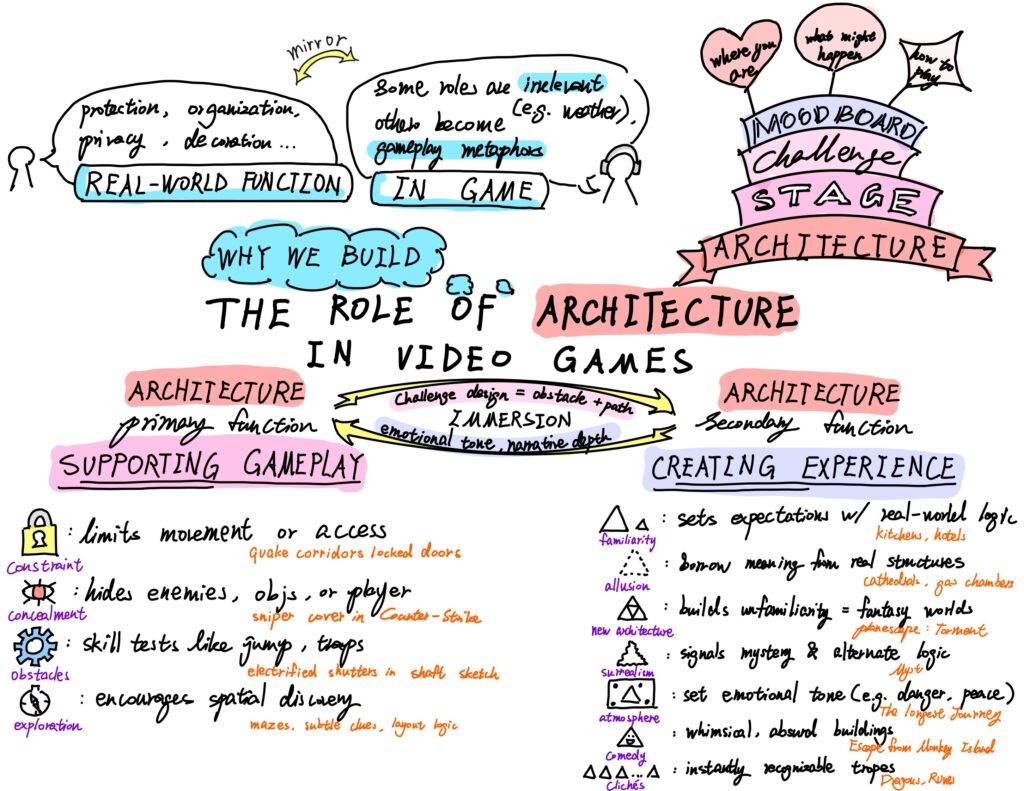 mirror
protection, organization,
privacy, decoration...
REAL-WORLD FUNCTION
Some roles are irrelevant
(e.g. weather),
others become
gameplay metaphors
IN GAME
where you are
what might happen
how to play
MOODBOARD
challenge
STAGE
ARCHITECTURE
WHY WE BUILD
THE ROLE OF ARCHITECTURE
IN VIDEO GAMES
ARCHITECTURE
primary function
SUPPORTING GAMEPLAY
challenge design = obstacle + path
IMMERSION
emotional tone, narrative depth
ARCHITECTURE
secondary function
CREATING EXPERIENCE
constraint
: limits movement or access
Quake corridors locked doors
concealment
: hides enemies, objs, or player
sniper cover in Counter-Strike
obstacles
: skill tests like jump, traps
electrified shutters in shaft sketch
exploration
: encourages spatial discovery
mazes. subtle clues, layout logic
familiarity
: sets expectations w/ real-world logic
kitchens, hotels
allusion
: borrow meaning from real structures
cathedrals, gas chambers
new architecture
: builds unfamiliarity = fantasy worlds
planescape: Torment
surrealism
: signals mystery & alternate logic
Myst
atmosphere
: set emotional tone (e.g. danger, peace)
The longest Journey
comedy
: whimsical, absurd buildings
Escape from Monkey Island
clichés
: instantly recognizable tropes
Dragons, Runes